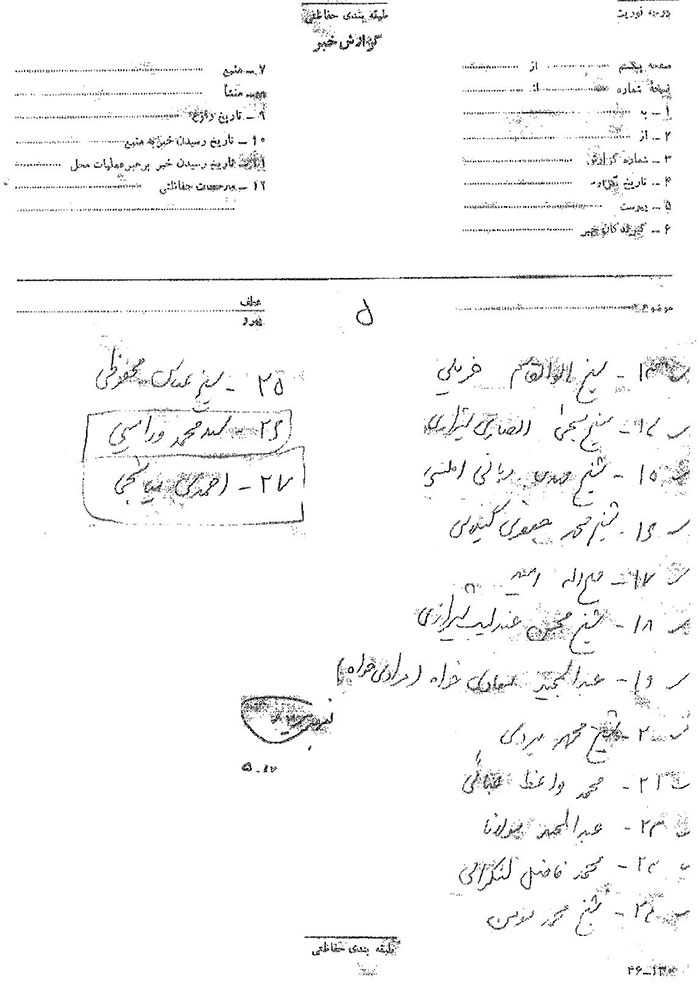 درجه فوریت
طبقه بندی حفاظتی
گزارش خبر
صفحه یکم از
نسخه شماره از
۱ - به
۲ - از
۳ - شماره گزارش
۴ - تاریخ گزارش
۵ - پیوست
۶ - گیرندگان خبر
۷ - منبع
۸ - منشأ
۹ - تاریخ وقوع
۱۰ - تاریخ رسیدن خبر به منبع
۱۱ - تاریخ رسیدن خبر به رهبر عملیات محل
۱۲ - ملاحظات حفاظتی
موضوع
عطف
پیرو
۱۳ - شیخ ابوالقاسم خزعلی
۱۴ - شیخ یحیی انصاری شیرازی
۱۵ - شیخ مهدی ربانی املشی
۱۶ - شیخ محمد جعفری گیلانی
۱۷ - فتح اله امید
۱۸ - شیخ محسن عندلیب شیرازی
۱۹ - عبدالمجید معادی خواه (مرادی خواه)
۲۰ - شیخ محمد یزدی
۲۱ - محمد واعظ عبائی
۲۳ - عبدالمجید مولانا
۲۴ - محمد فاضل لنکرانی
شیخ محمد مومن
۲۵ - شیخ عباس محفوظی
۲۶ - سید محمد
۲۷ - احمدی میانجی
۵-۱۲
طبقه بندی حفاظتی
۴۶-۱۳